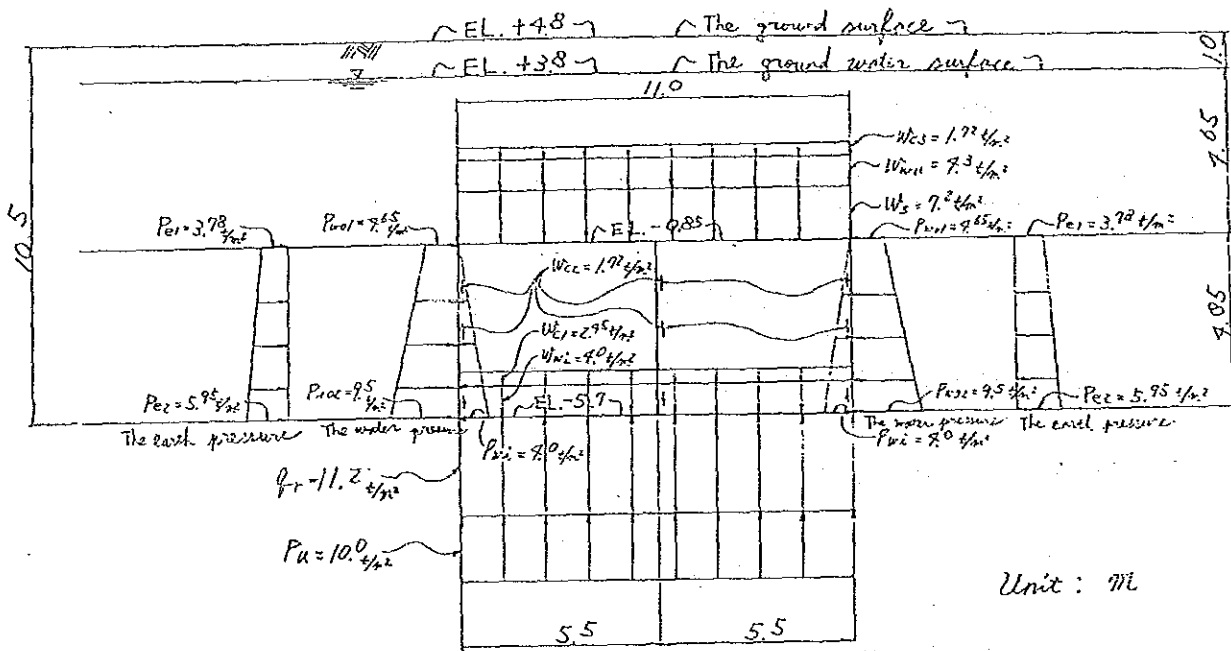 EL. +4.8 The ground surface
EL. +3.8 The ground water surface
1.0
11.0
Wcs = 1.72 t/m²
4.65
10.5
Pe1 = 3.78 t/m²
Pwo1 = 4.65 t/m²
EL. -0.85
Pwo1 = 4.65 t/m²
Pe1 = 3.78 t/m²
Wc2 = 1.72 t/m²
4.85
Wc1 = 2.95 t/m²
Wwi = 4.0 t/m²
Pe2 = 5.95 t/m²
Pwo2 = 9.5 t/m²
EL. -5.7
Pwo2 = 9.5 t/m²
Pe2 = 5.95 t/m²
The earth pressure
The water pressure
Pwi = 4.0 t/m²
Pwi = 4.0 t/m²
The water pressure
The earth pressure
qr = 11.2 t/m²
Pu = 10.0 t/m²
Unit : m
5.5
5.5